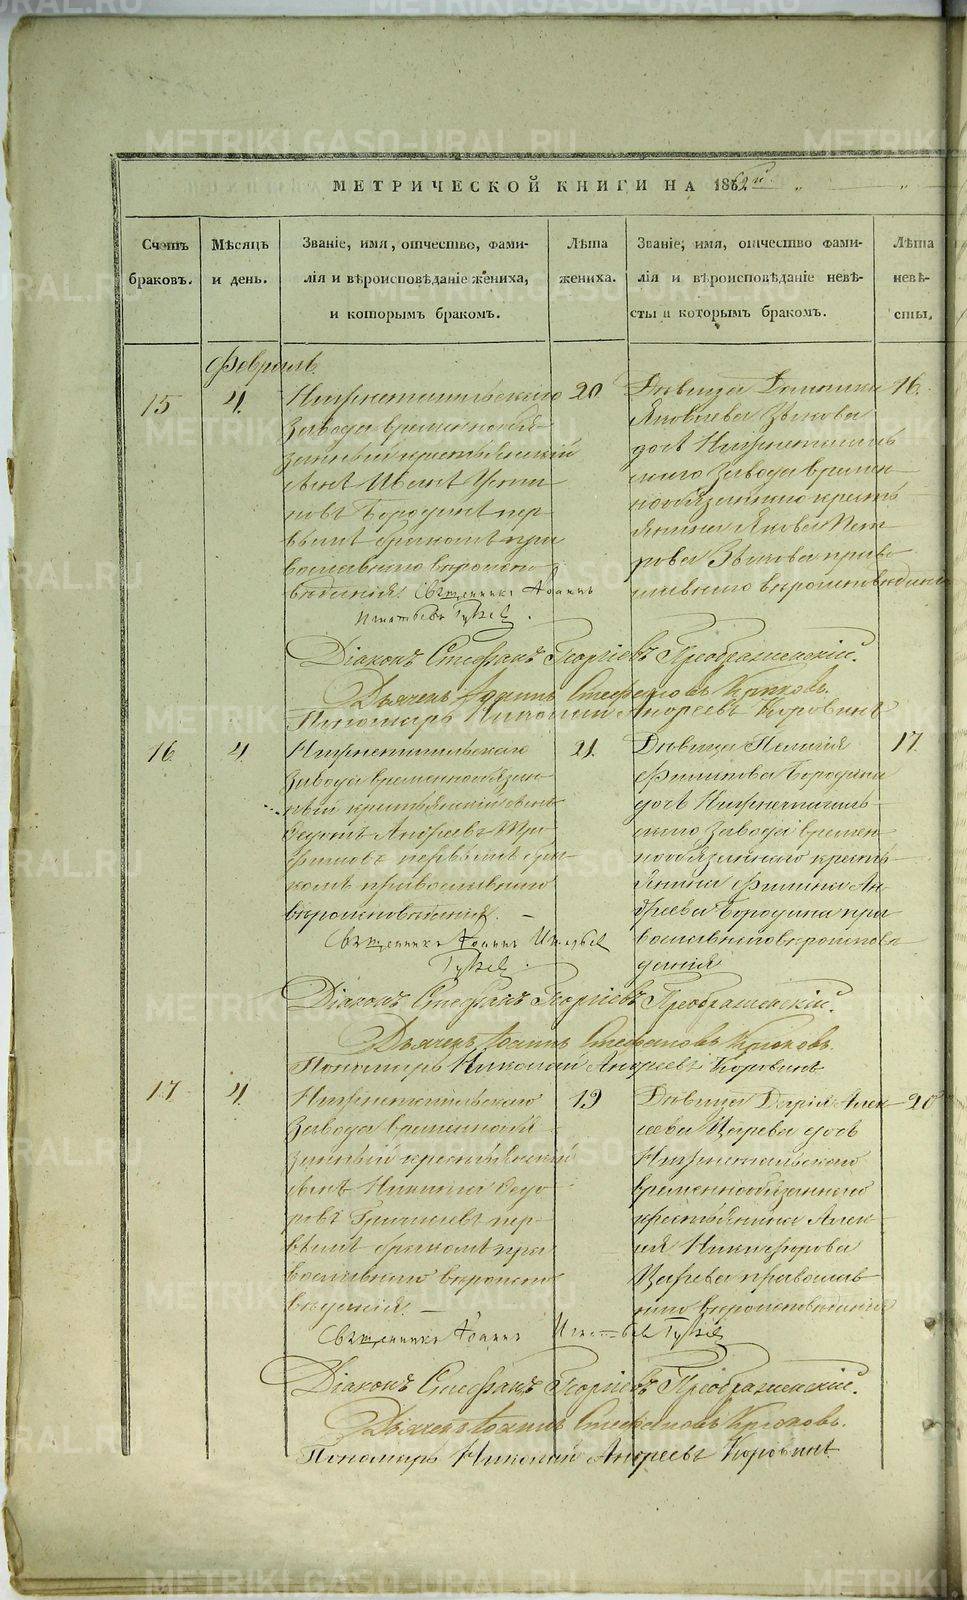 МЕТРИЧЕСКОЙ КНИГИ НА 1862й.
Счетъ браковъ.
Мѣсяцъ и день.
Званіе, имя, отчество, фами-
лія и вѣроисповѣданіе жениха,
и которымъ бракомъ.
Лѣта жениха.
Званіе, имя, отчество фами-
лія и вѣроисповѣданіе невѣ-
сты и которымъ бракомъ.
Лѣта невѣ-
сты.
Февраль.
15
4.
Нижнетагильскаго
завода временнообя-
занный крестьянскій
сынъ Иванъ Усти-
новъ Бородинъ пер-
вымъ бракомъ пра
вославнаго вѣроиспо
вѣданія
20
Дѣвица
Яковлева Зыкова
дочь Нижнетагиль
скаго завода времен-
нообязаннаго кресть
янина Якова Пет
рова Зыкова право
славнаго вѣроисповѣданія
16.
Священникъ Іоаннъ
Игнатьевъ
Діаконъ Стефанъ Георгіевъ Преображенскій.
Дьячекъ Іоаннъ Стефановъ Крюковъ.
Пономарь Николай Андреевъ Коровинъ
16
4.
Нижнетагильскаго
завода временнообязан-
ный крестьянскій сынъ
Федотъ Андреевъ Три-
фоновъ первымъ бра-
комъ православнаго
вѣроисповѣданія. —
21.
Дѣвица Пелагія
Филипова Бородина
дочь Нижнетагиль-
скаго завода времен-
нообязаннаго кресть-
янина Филипа Ан-
дреева Бородина пра
вославнаго вѣроисповѣ
данія
17.
Священникъ Іоаннъ Игнатьевъ
Діаконъ Стефанъ Георгіевъ Преображенскій.
Дьячекъ Іоаннъ Стефановъ Крюковъ.
Пономарь Николай Андреевъ Коровинъ
17
4.
Нижнетагильскаго
завода временнообя-
занный крестьянскій
сынъ Никита Федо
ровъ пер-
вымъ бракомъ пра
вославнаго вѣроиспо
вѣданія. —
19
Дѣвица Дарія Алек-
сеева Царева дочь
Нижнетагильскаго
временнообязаннаго
крестьянина Алек-
сея Никифорова
Царева православ
наго вѣроисповѣданія
20
Священникъ Іоаннъ Игнатьевъ
Діаконъ Стефанъ Георгіевъ Преображенскій.
Дьячекъ Іоаннъ Стефановъ Крюковъ.
Пономарь Николай Андреевъ Коровинъ.
METRIKI.GASO-URAL.RU